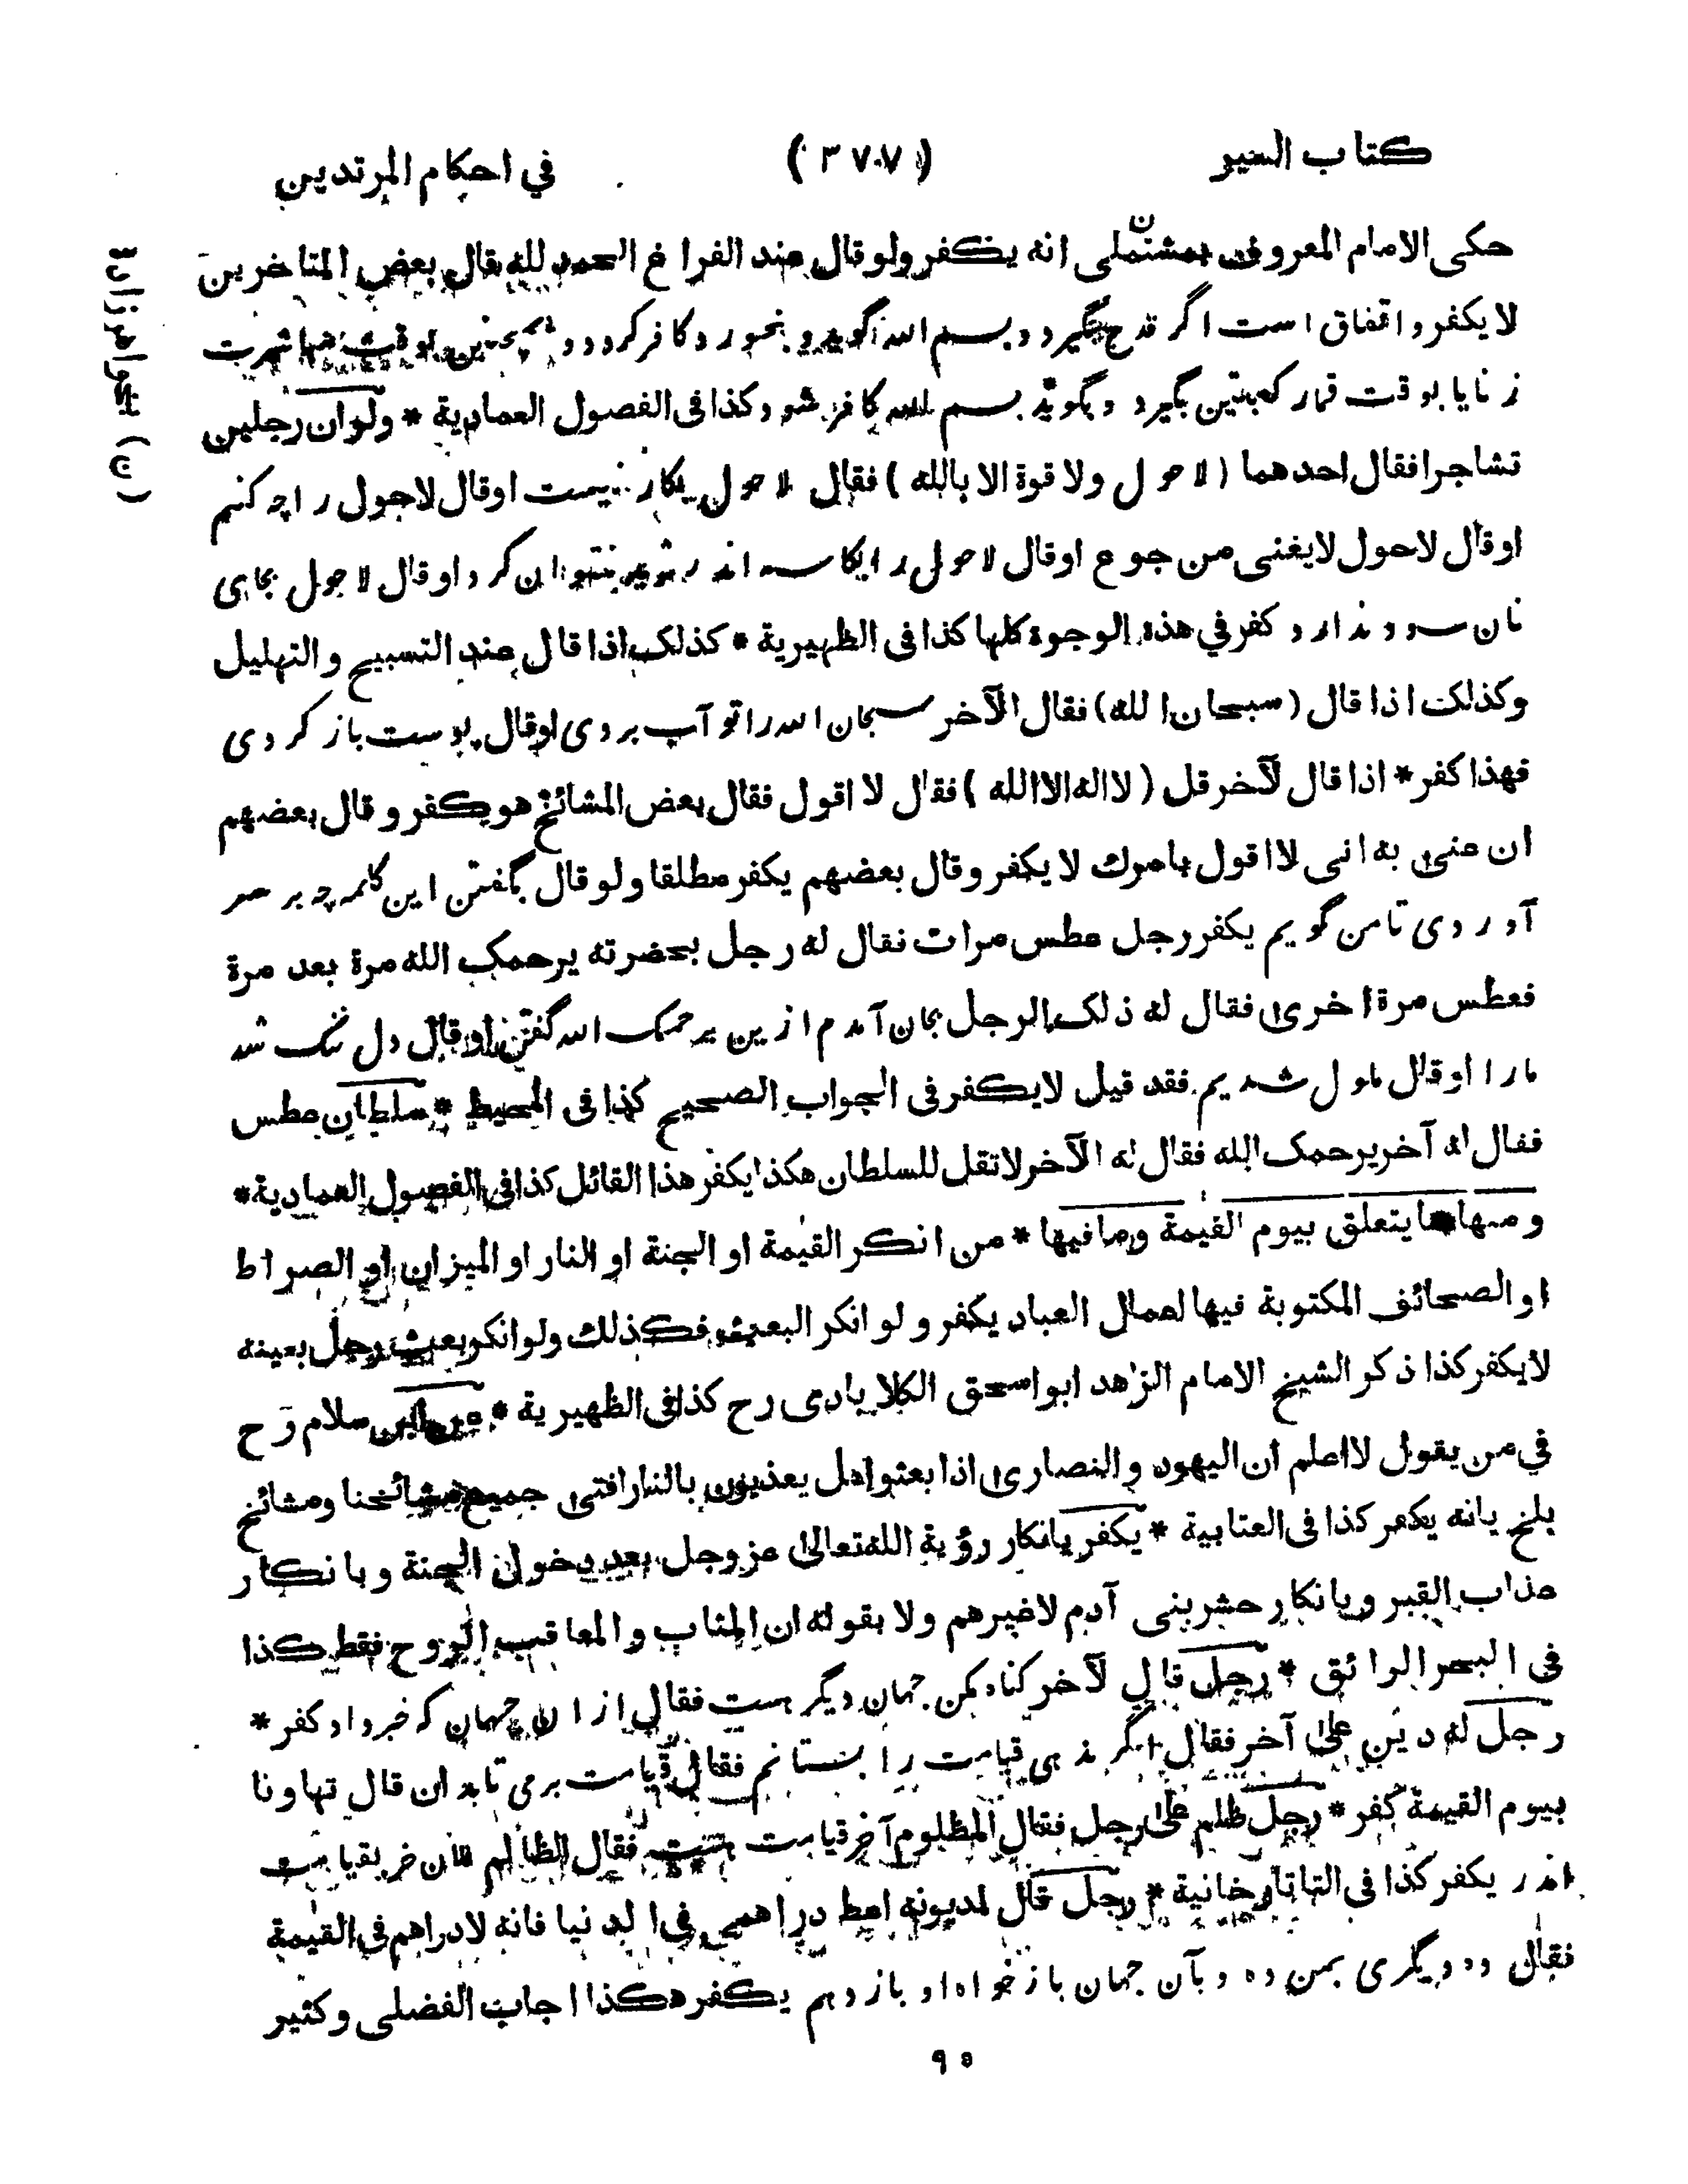 كتاب السير
( ٣٧٧ )
في احكام المرتدين
حكى الامام المعروف بمشتملى انه يكفر ولو قال عند الفراغ الحمد لله قال بعض المتاخرين
لا يكفر و اتفاق است اگر قدح بگيرد و بسم الله گويد و بخورد كافر گردد و همچنين بوقت مباشرت
زنا يا بوقت قمار كعبتين بگيرد و بگويد بسم الله كافر شود كذا فى الفصول العمادية * ولو ان رجلين
تشاجرا فقال احدهما ( لا حول ولا قوة الا بالله ) فقال لا حول بكار نيست او قال لا حول را چه كنم
او قال لا حول لا يغنى من جوع او قال لا حول را بكاسه اندر ثريد نتوان كرد او قال لا حول بجاى
نان سود ندارد كفر في هذه الوجوه كلها كذا فى الظهيرية * كذلك اذا قال عند التسبيح و التهليل
وكذلك اذا قال ( سبحان الله ) فقال الآخر سبحان الله را تو آب بردى او قال پوست باز كردى
فهذا كفر * اذا قال لآخر قل ( لا اله الا الله ) فقال لا اقول فقال بعض المشائخ هو كفر و قال بعضهم
ان عنى به انى لا اقول بامرك لا يكفر وقال بعضهم يكفر مطلقا ولو قال بگفتن اين كلمه چه بر سر
آوردى تا من گويم يكفر رجل عطس مرات فقال له رجل بحضرته يرحمك الله مرة بعد مرة
فعطس مرة اخرى فقال له ذلك الرجل بجان آمدم ازين يرحمك الله گفتن او قال دل تنگ شد
مارا او قال ملول شديم فقد قيل لا يكفر فى الجواب الصحيح كذا فى المحيط * سلطان عطس
فقال له آخر يرحمك الله فقال له الآخر لا تقل للسلطان هكذا يكفر هذا القائل كذا فى الفصول العمادية *
ومنها ما يتعلق بيوم القيمة وما فيها * من انكر القيمة او الجنة او النار او الميزان او الصراط
او الصحائف المكتوبة فيها اعمال العباد يكفر و لو انكر البعث فكذلك ولو انكر بعث رجل بعينه
لا يكفر كذا ذكر الشيخ الامام الزاهد ابو اسحق الكلابادى رح كذا فى الظهيرية * عن ابن سلام رح
في من يقول لا اعلم ان اليهود و النصارى اذا بعثوا هل يعذبون بالنار افتى جميع مشائخنا ومشائخ
بلخ بانه يكفر كذا فى العتابية * يكفر بانكار رؤية الله تعالى عز وجل بعد دخول الجنة و بانكار
عذاب القبر وبانكار حشر بنى آدم لا غيرهم ولا بقوله ان المثاب و المعاقب الروح فقط كذا
فى البحر الرائق * رجل قال لآخر گناه مكن جهان ديگر هست فقال از ان جهان كه خبر داد كفر *
رجل له دين على آخر فقال اگر ندهى قيامت را بستانم فقال قيامت برمى تابد ان قال تهاونا
بيوم القيمة كفر * رجل ظلم على رجل فقال المظلوم آخر قيامت هست فقال الظالم فلان خر بقيامت
اندر يكفر كذا فى التاتارخانية * رجل قال لمديونه اعط دراهمى فى الدنيا فانه لا دراهم فى القيمة
فقال ده ديگرى بمن ده و بآن جهان باز خواه او باز دهم يكفر هكذا اجاب الفضلى وكثير
٩٥
( ن ) خواهر زاده